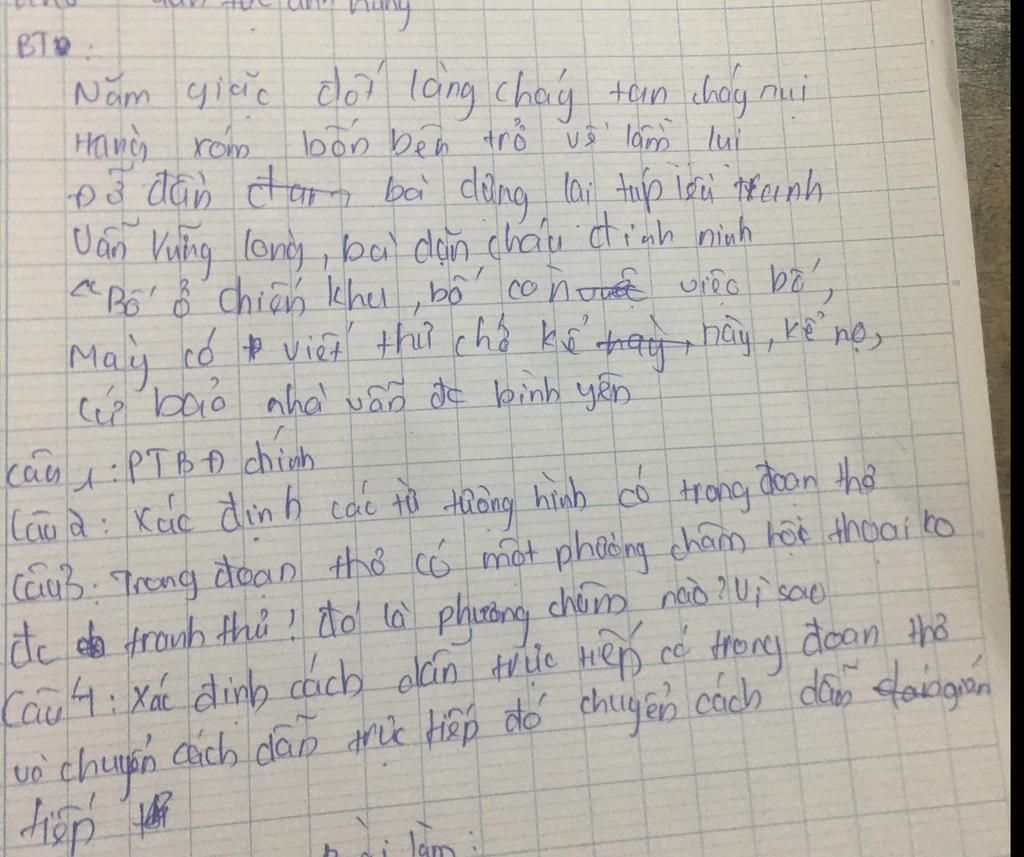 hùng
BT:
Năm giặc đốt làng cháy tan cháy nui
Hàng xóm bốn bên trở về lầm lui
Đỡ dần bà dựng lại túp lều tranh
Vẫn vững lòng, bà dặn cháu đinh ninh
"Bố ở chiến khu, bố còn việc bố,
Mày có viết thư chớ kể này, kể nọ,
Cứ bảo nhà vẫn đc bình yên
Câu 1: PTBĐ chính
Câu 2: Xác định các từ tượng hình có trong đoạn thơ
Câu 3: Trong đoạn thơ có một phương châm hội thoại ko
đc tranh thủ! đó là phương châm nào? Vì sao
Câu 4: Xác định cách dẫn trực tiếp có trong đoan thơ
và chuyển cách dẫn trực tiếp đó chuyển cách dẫn gián
tiếp
làm: